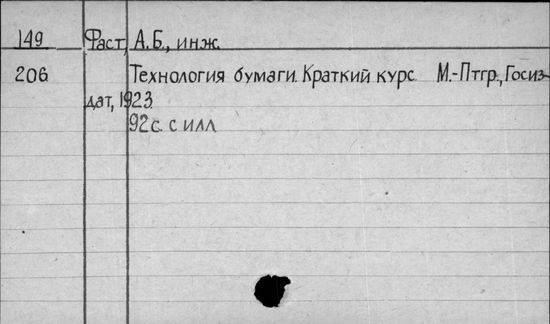 149 Фаст, А.Б., инж.
206 Технология бумаги. Краткий курс М.-Птгр., Госиз-
дат, 1923
92с. с илл